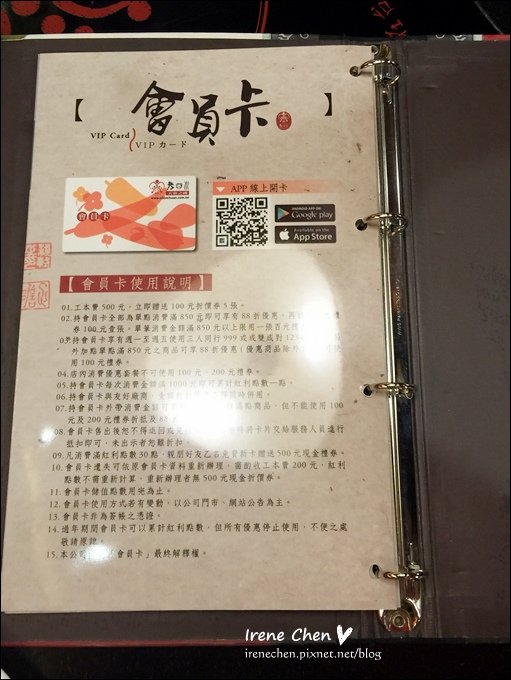 【會員卡】
VIP Card
VIPカード
會員卡
APP 線上開卡
ANDROID APP ON
Google play
Available on the
App Store
【會員卡使用說明】
01.工本費500元，立即贈送100元折價券5張。
02.持會員卡全部為單點消費滿850元即可享有88折優惠，再
券100元壹張。單筆消費金額滿850元以上限用一張百元禮
持會員卡享有週一至週五使用三人同行999或或雙成對123
外加點單點滿850元之商品可享88折優惠(優惠商品除外
用100元禮券。
04.店內消費優惠套餐不可使用100元、200元禮券。
05.持會員卡每次消費金額滿1000元即可累計紅利點數一點。
06.會員卡與友好廠商、
07.持會員卡外帶消費金額可 點商品，但不能使用100
元及200元禮券折抵及88
08.會員卡售出後恕不得退回或 將卡片交給服務人員進行
抵扣即可，未出示者恕難折扣。
09.凡消費滿紅利點數30點，親朋好友乙名免費新卡贈送500元現金禮券。
10.會員卡遺失可依原會員卡資料重新辦理，需酌收工本費200元，紅利
點數不需重新計算，重新辦理者無500元現金折價券。
11.會員卡儲值點數用完為止。
12.會員卡使用方式若有變動，以公司門市、網站公告為主。
13.會員卡非為簽帳之憑證。
14.過年期間會員卡可以累計紅利點數，但所有優惠停止使用，不便之處
敬請原諒。
15.本公司 會員卡」最終解釋權。
Irene Chen
irenechen.pixnet.net/blog